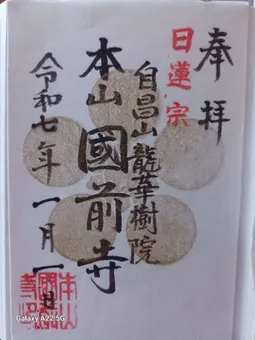 奉拝
日蓮宗
自昌山龍華樹院
本山國前寺
令和七年一月一日
Galaxy A22 5G